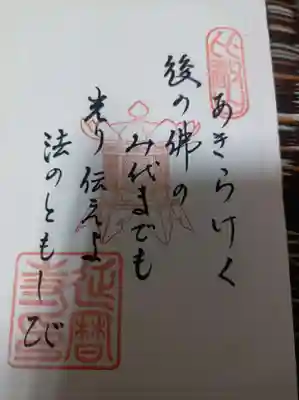 あきらけく
後の佛の
み代までも
光り伝えよ
法のともしび
延暦
寺印